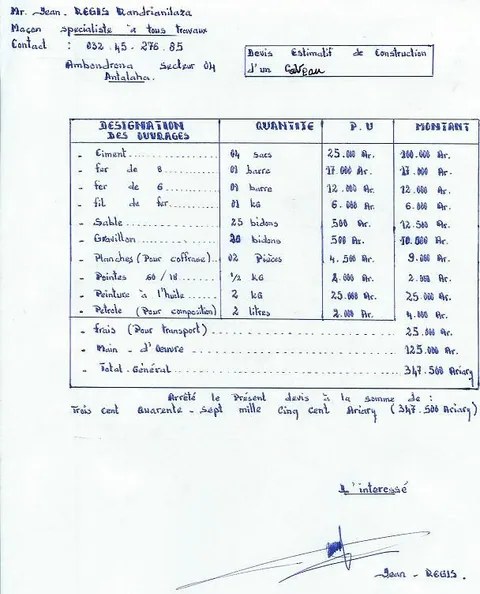 Mr. Jean. REGIS Randrianilaza
Maçon specialiste à tous travaux
Contact : 032.45-276.85
Ambondrona Secteur 04
Antalaha.
Devis Estimatif de Construction
d'un Caveau
DESIGNATION DES OUVRAGES QUANTITE P.U MONTANT
- Ciment 04 sacs 25.000 Ar. 100.000 Ar.
- fer de 8 01 barre 17.000 Ar. 17.000 Ar.
- fer de 6 01 barre 12.000 Ar. 12.000 Ar.
- fil de fer 01 kg 6.000 Ar. 6.000 Ar.
- Sable 25 bidons 500 Ar. 12.500 Ar.
- Gravillon 20 bidons 500 Ar. 10.000 Ar.
- Planches (Pour coffrase) 02 Pièces 4.500 Ar. 9.000 Ar.
- Pointes 60/18 1/2 kg 2.000 Ar.
- Peinture à l'huile 2 kg 25.000 Ar. 25.000 Ar.
- Petrole (Pour composition) 2 litres 2.000 Ar. 4.000 Ar.
- frais (Pour transport) 25.000 Ar.
- Main-d'Oeuvre 125.000 Ar.
- Total Général 347.500 Ariary
Arrêté le Présent devis à la somme de :
Trois cent Quarente-Sept mille Cinq cent Ariary (347.500 Ariary)
L'interessé
Jean-REGIS.